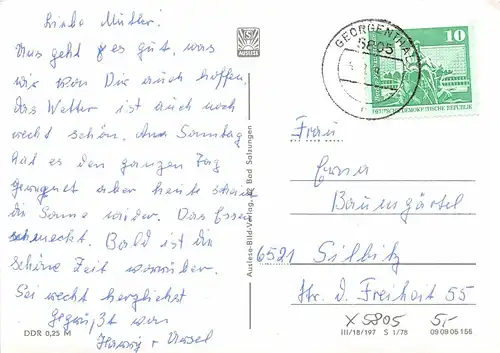 Liebe Mutter!
Uns geht es gut, was
wir von Dir auch hoffen,
das Wetter ist auch noch
recht schön. Am Sonntag
hat es den ganzen Tag
geregnet aber heute scheint
die Sonne wieder. Das Essen
schmeckt. Bald ist die
schöne Zeit vorrüber.
Sei recht herzlichst
Gegrüßt von
+ Ursel
DDR 0,25 M
Auslese-Bild-Verlag, 62 Bad Salzungen
GEORGENTHAL
5805
10
DEUTSCHE DEMOKRATISCHE REPUBLIK
Frau
Erna
Baumgärtel
6521 Silbitz
Str. d. Freiheit 55
X 5805 5,-
III/18/197 S 1/78 09 09 05 155